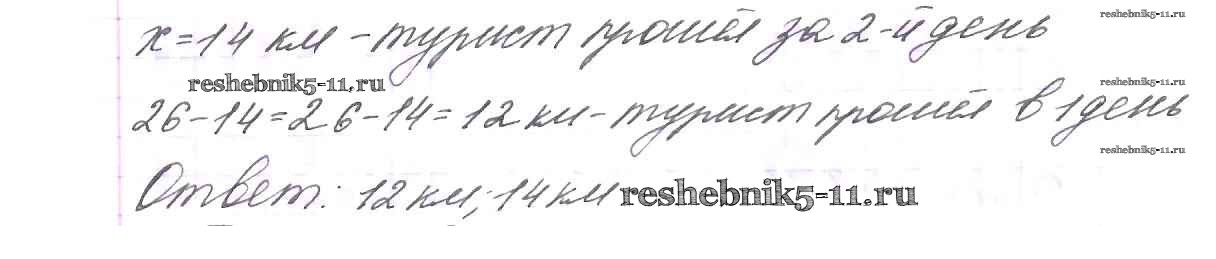 x=14 км - турист прошёл за 2-й день
reshebnik5-11.ru
reshebnik5-11.ru
reshebnik5-11.ru
26-14=26-14=12 км - турист прошёл в 1 день
reshebnik5-11.ru
Ответ: 12 км; 14 км reshebnik5-11.ru